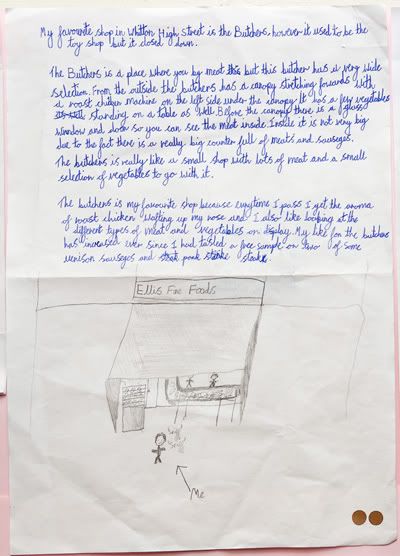 My favourite shop in Whitton High Street is the Butchers, however it used to be the
toy shop but it closed down.
The Butchers is a place where you by meat this but this butcher has a very wide
selection. From the outside the butchers has a canopy stretching forwards with
a roast chicken machine on the left side under the canopy. It has a few vegetables
standing on a table as well. Before the canopy there is a glass
window and door so you can see the meat inside. Inside it is not very big
due to the fact there is a really big counter full of meats and sauseges.
The butchers is really like a small shop with lots of meat and a small
selection of vegetables to go with it.
The butchers is my favourite shop because everytime I pass I get the aroma
of roast chicken wafting up my nose and I also like looking at the
different types of meat and vegetables on display. My like for the butchers
has increased ever since I had tasted a free sample or two of some
venison sauseges and pork steake
Ellis Fine Foods
Me